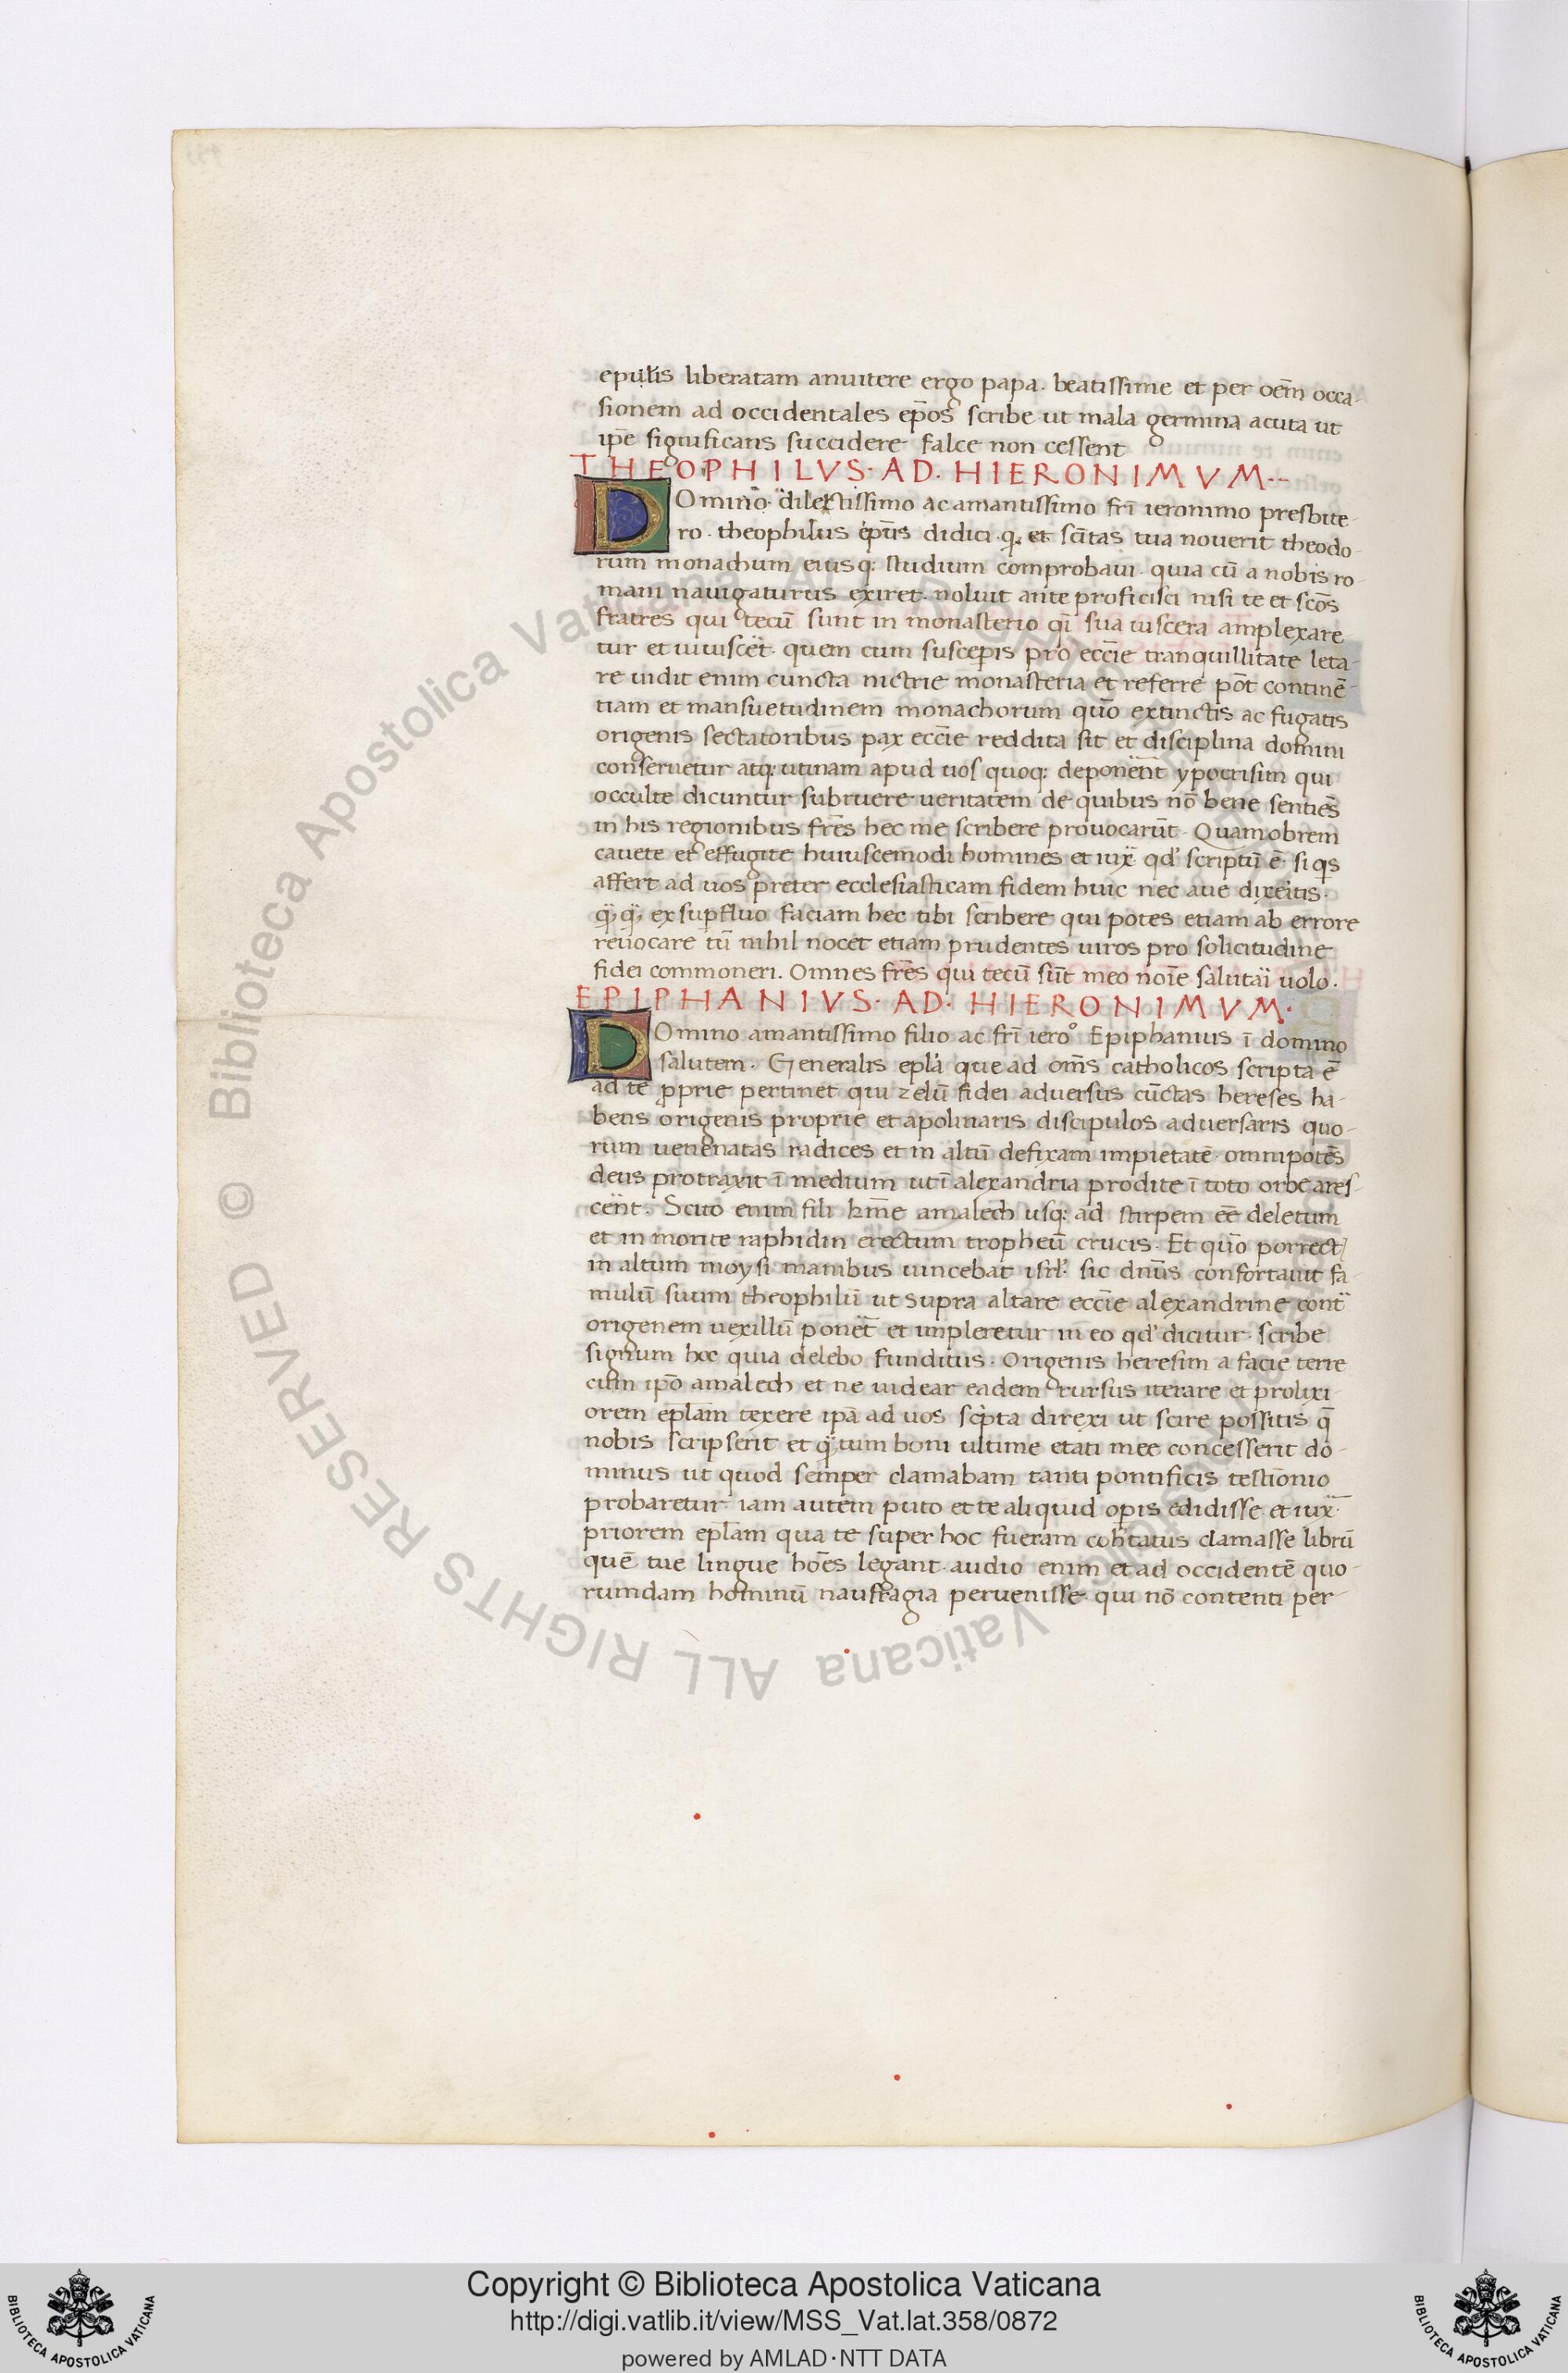 epulis liberatam anuitere ergo papa. beatissime et per oēm occa-
sionem ad occidentales ep̄os scribe ut mala germina acuta ut
ip̄e significans succidere falce non cessent
THEOPHILVS· AD· HIERONIMVM·-
DOmino· dilectissimo ac amantissimo frī ieronimo presbite-
ro· theophilus ep̄us didici q. et sc̄itas tua nouerit theodo-
rum monachum eiusq: studium comprobaui· quia cū a nobis ro-
mam nauigaturus exiret· noluit ante proficisci nisi te et sc̄os
fratres qui tecū sunt in monasterio qi sua uiscera amplexare
tur et uiuiscēt· quem cum suscepis pro ecc̄ie tranquillitate leta-
re uidit enim cuncta nictrie monasteria et referre pōt continē-
tiam et mansuetudinem monachorum quō extinctis ac fugatis
origenis sectatoribus pax ecc̄ie reddita sit et disciplina domini
conseruetur atq: utinam apud uos quoq: deponent ypocrisim qui
occulte dicuntur subruere ueritatem de quibus nō bene sentiēs
in his regionibus frēs hec me scribere prouocarūt· Quamobrem
cauete et effugite huiuscemodi homines et iux̄ qd' scriptū ē· si qs
affert ad uos preter ecclesiasticam fidem huic nec aue dixeitis·
q̄q̄ ex supfluo faciam hec tibi scribere qui potes etiam ab errore
reuocare tū nihil nocet etiam prudentes uiros pro solicitudine
fidei commoneri. Omnes frēs qui tecū sūt meo noīe salutaī uolo·
EPIPHANIVS· AD· HIERONIMVM·
DOmino amantissimo filio ac frī iero° Epiphanius ī domino
salutem· Generalis epl'a que ad om̄s catholicos scripta ē
ad te pprie pertinet qui zelū fidei aduersus cūctas hereses ha-
bens origenis proprie et apolinaris discipulos aduersaris quo-
rum uenenatas radices et in altū defixam impietatē omnipotēs
deus protraxit ī medium ut ī alexandria prodite ī toto orbe ares-
cēnt· Scito enim fili kme amalech usq: ad stirpem eē deletum
et in monte raphidin erectum tropheū crucis· Et quō porrect
in altum moysi manibus uincebat isrl' sic dn̄us confortauit fa-
mulū suum theophilū ut supra altare ecc̄ie alexandrine cont
origenem uexillū ponet et impleretur in eo qd' dicitur· scribe
signum hoc quia delebo funditus· Origenis heresim a facie terre
cum ip̄o amalech et ne uidear eadem rursus iterare et prolixi-
orem epl̄am texere ip̄a ad uos scpta direxi ut scire possitis q̄
nobis scripserit et q̄tum boni ultime etati mee concesserit do-
minus ut quod semper clamabam tanti pontificis testīonio
probaretur· iam autem puto et te aliquid opis edidisse et iux̄
priorem epl̄am qua te super hoc fueram cohtatus clamasse librū
quē tue lingue hoēs legant· audio enim et ad occidentē quo-
rumdam hominū naufragia peruenisse· qui nō contenti per-
Copyright © Biblioteca Apostolica Vaticana
http://digi.vatlib.it/view/MSS_Vat.lat.358/0872
powered by AMLAD·NTT DATA